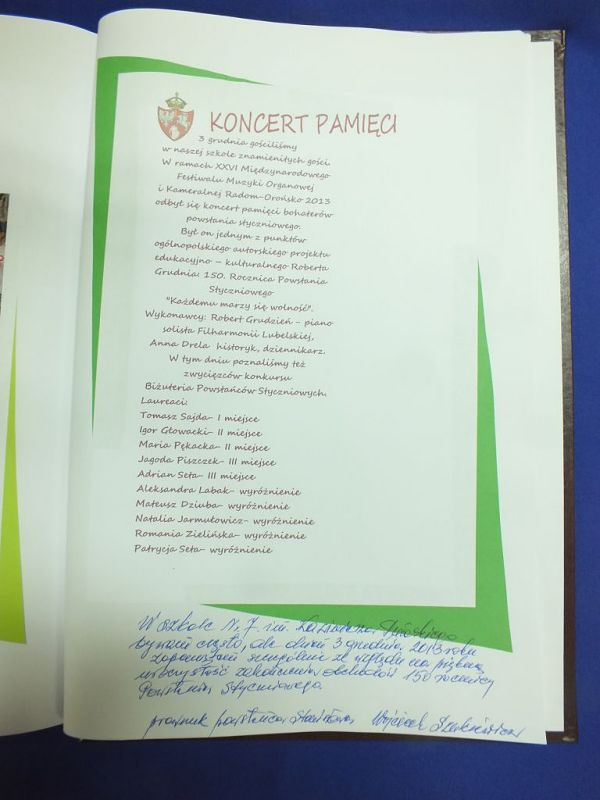 KONCERT PAMIĘCI
3 grudnia gościliśmy
w naszej szkole znamienitych gości.
W ramach XXVI Międzynarodowego
Festiwalu Muzyki Organowej
i Kameralnej Radom-Orońsko 2013
odbył się koncert pamięci bohaterów
powstania styczniowego.
Był on jednym z punktów
ogólnopolskiego autorskiego projektu
edukacyjno – kulturalnego Roberta
Grudnia: 150. Rocznica Powstania
Styczniowego
"Każdemu marzy się wolność".
Wykonawcy: Robert Grudzień – piano
solista Filharmonii Lubelskiej,
Anna Drela historyk, dziennikarz.
W tym dniu poznaliśmy też
zwycięzców konkursu
Biżuteria Powstańców Styczniowych.
Laureaci:
Tomasz Sajda- I miejsce
Igor Głowacki- II miejsce
Maria Pękacka- II miejsce
Jagoda Piszczek- III miejsce
Adrian Seta- III miejsce
Aleksandra Labak- wyróżnienie
Mateusz Dziuba- wyróżnienie
Natalia Jarmułowicz- wyróżnienie
Romania Zielińska- wyróżnienie
Patrycja Seta- wyróżnienie
W szkole Nr 7 im. Kazimierza
bywam często, ale dzień 3 grudnia 2013 roku
zapamiętam szczególnie ze względu na piękną
uroczystość zakończenia obchodów 150 rocznicy
Powstania Styczniowego.
prawnuk powstańca Stanisława Wojciech